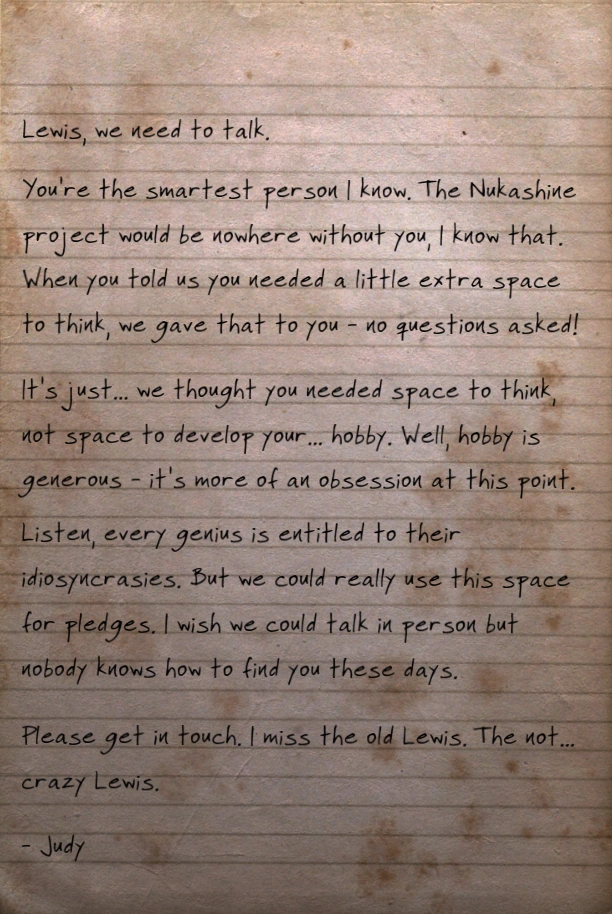 Lewis, we need to talk.
You're the smartest person I know. The Nukashine
project would be nowhere without you, I know that.
When you told us you needed a little extra space
to think, we gave that to you - no questions asked!
It's just... we thought you needed space to think,
not space to develop your... hobby. Well, hobby is
generous - it's more of an obsession at this point.
Listen, every genius is entitled to their
idiosyncrasies. But we could really use this space
for pledges. I wish we could talk in person but
nobody knows how to find you these days.
Please get in touch. I miss the old Lewis. The not...
crazy Lewis.
- Judy